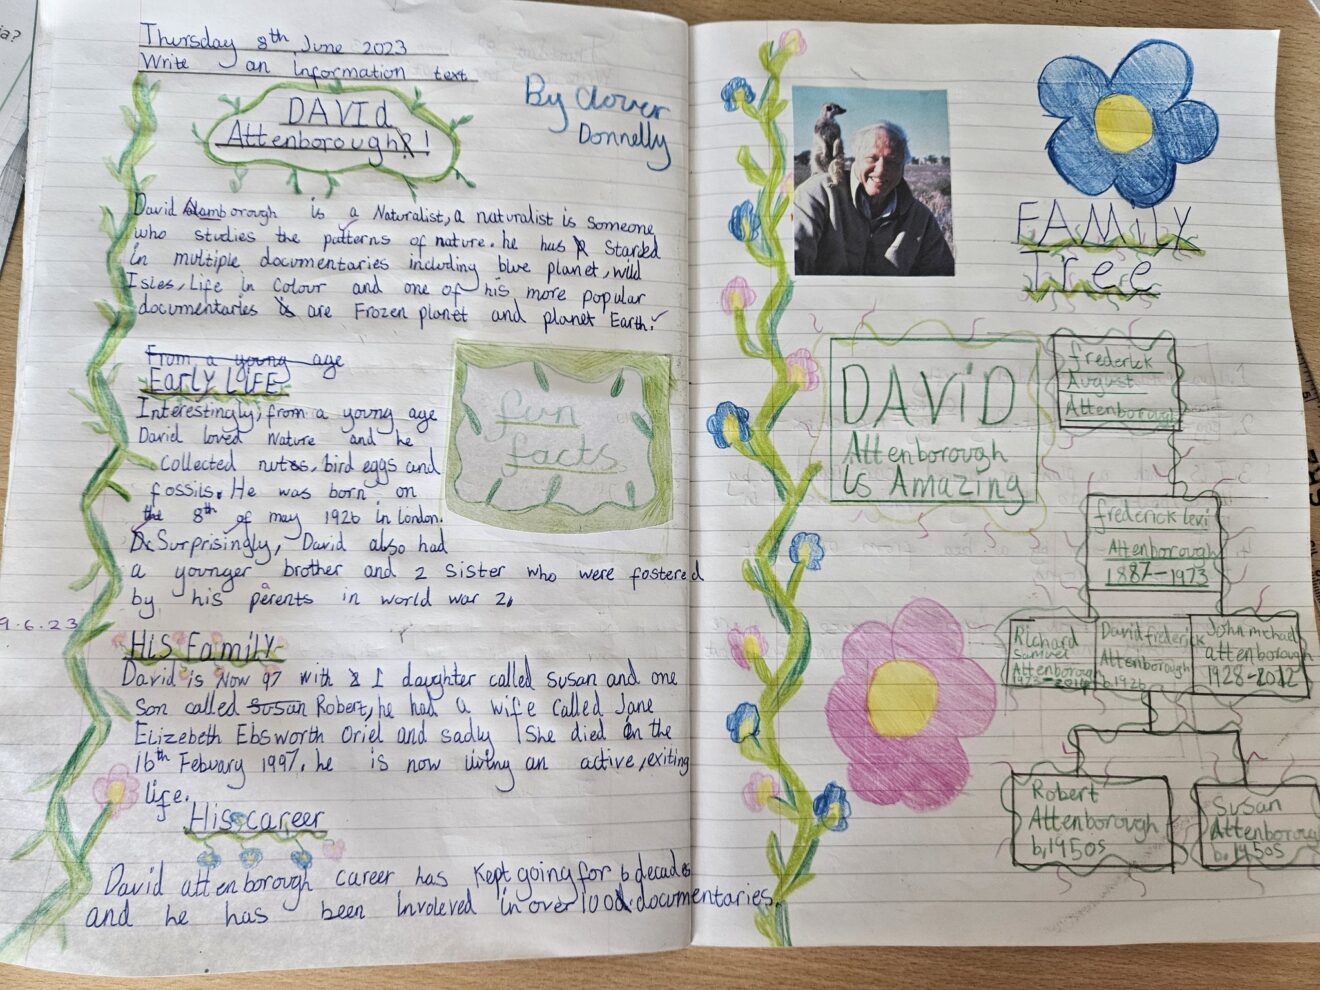 ia?
Thursday 8th June 2023
Write an information text
DAVId
Attenborough !
By Clover
Donnelly
David borough is a Naturalist, a naturalist is someone
who studies the patterns of nature. he has Starded
in multiple documentaries including blue planet, wild
Isles, Life in Colour and one of his more popular
documentaries are Frozen planet and planet Earth.
From a young age
Early LIFE
Interestingly, from a young age
David loved Nature and he
Collected nuts, bird eggs and
fossils. He was born on
the 8th of may 1926 in London.
Surprisingly, David also had
a younger brother and 2 sister who were fostered
by his perents in world war 2.
9.6.23
fun
facts
His Family
David is Now 97 with 1 daughter called susan and one
son called Susan Robert, he had a wife called Jane
Elizebeth Ebsworth Oriel and sadly She died on the
16th Febuary 1997. he is now living an active, exiting
life.
His career
David attenborough career has Kept going for 6 decades
and he has been Involeved in over 100 documentaries.
FAMily
Tree
DAViD
Attenborough
Is Amazing
frederick
August
Attenborough
frederick levi
Attenborough
1887-1973
Richard
Samuel
Attenborough
David frederick
Attinborough
b.1926
John michael
attenborough
1928-2012
Robert
Attenborough
b.1950s
Susan
Attenborough
b.1950s